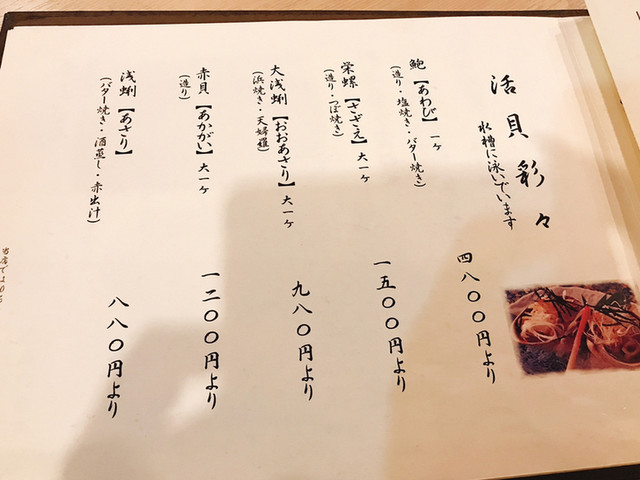 活貝彩々
水槽に泳いでいます
鮑【あわび】一ヶ
(造り・塩焼き・バター焼き)
四八〇〇円より
栄螺【さざえ】大一ヶ
(造り・つぼ焼き)
一五〇〇円より
大浅蜊【おおあさり】大一ヶ
(浜焼き・天婦羅)
九八〇円より
赤貝【あかがい】大一ヶ
(造り)
一二〇〇円より
浅蜊【あさり】
(バター焼き・酒蒸し・赤出汁)
八八〇円より